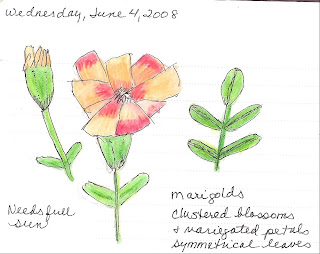 Wednesday, June 4, 2008
Needs full
sun
Marigolds
Clustered blossoms
& variegated petals
symmetrical leaves